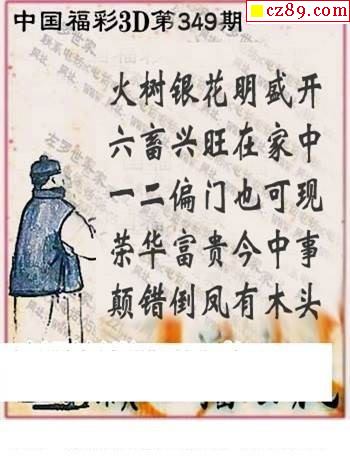 cz89.com
中国福彩3D第349期
火树银花明盛开
六畜兴旺在家中
一二偏门也可现
荣华富贵今中事
颠错倒凤有木头